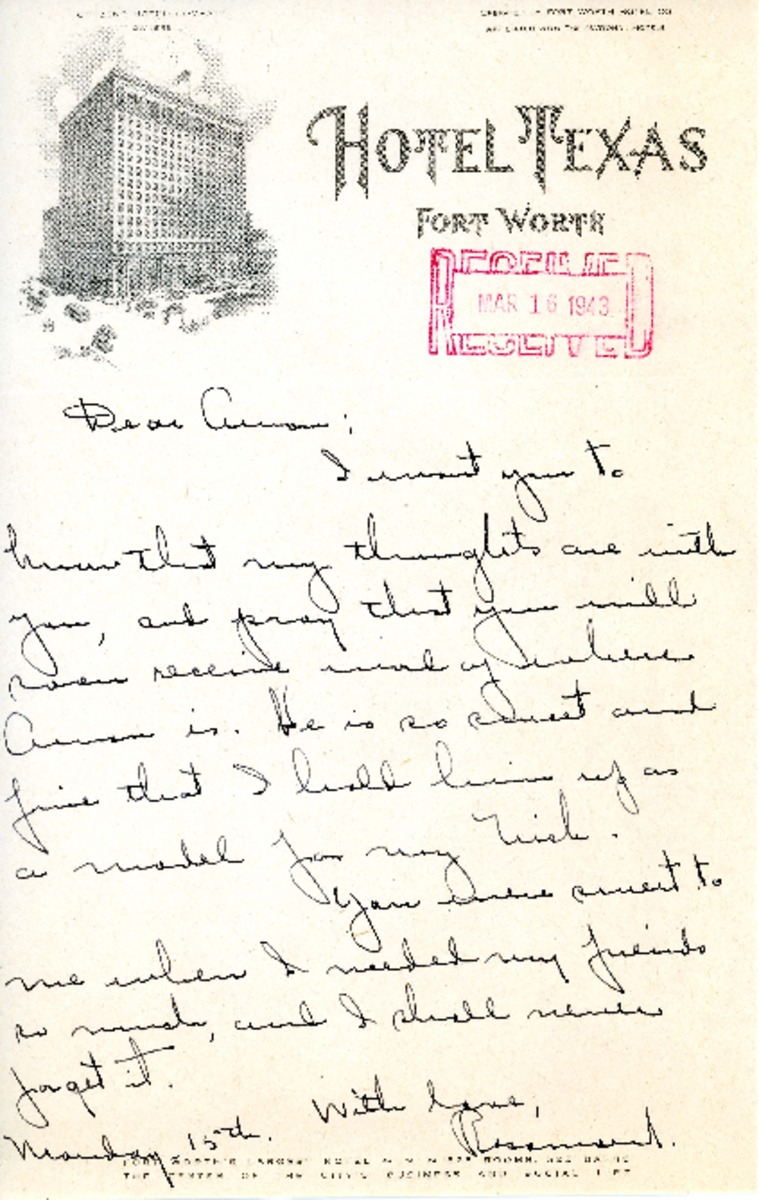 HOTEL TEXAS
FORT WORTH
RECEIVED
MAR 16 1943
RECEIVED
Dear Amon:
I want you to
know that my thoughts are with
you, and pray that you will
soon receive word of where
Amon is. He is so sweet and
fine that I hold him up as
a model for my Dick.
You were sweet to
me when I needed my friends
so much, and I shall never
forget it.
With love,
Monday 15th. Rosamond.
FORT WORTH'S LARGEST HOTEL ROOMS
THE CENTER OF THE CITY'S BUSINESS AND SOCIAL LIFE